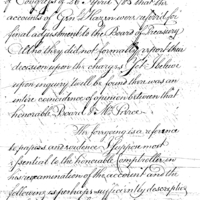 of Congress of 26 April 1785 that the
accounts of Gen. Hazen were referred for
final adjustment to the Board of Treasury
Who they did not formally report their
decision upon the charges. Yet I believe
upon inquiry it will be found there was an
entire coincidence of opinion between that
honorable Board & Mr. Pierce.
The foregoing is a reference
to papers and evidence I suppose most
essential to the honorable Comptroller in
his examination of the account and the
following is perhaps sufficiently descriptive